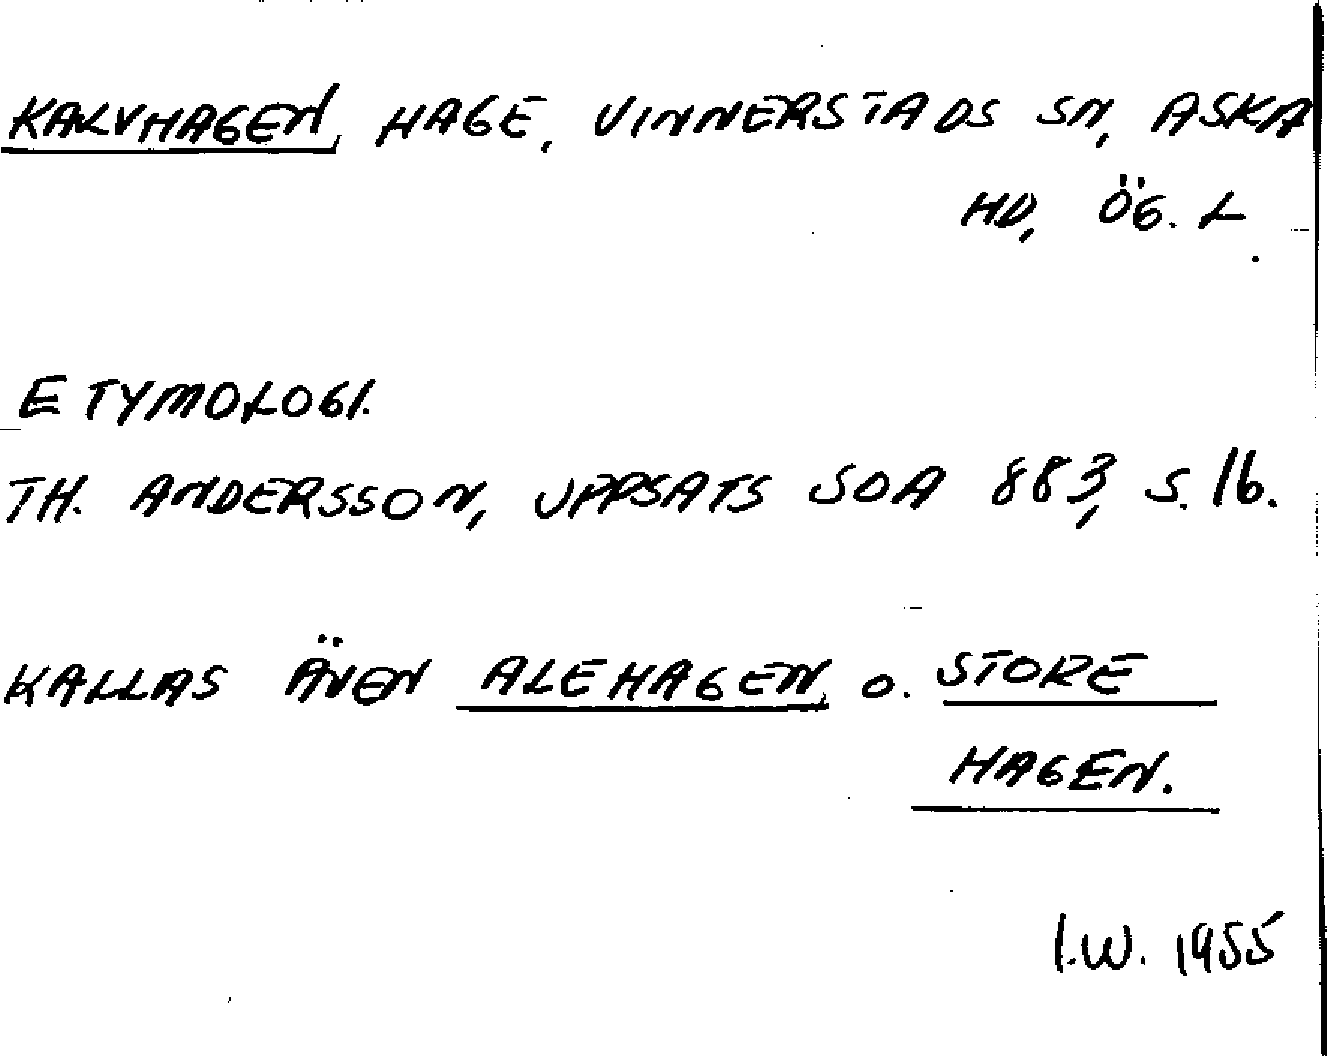 KALVHAGEN, HAGE, VINNERSTADS SN, ASKA
HD, ÖG. L
ETYMOLOGI.
TH. ANDERSSON, UPPSATS SOA 883, S. 16.
KALLAS ÄVEN ALEHAGEN, O. STORE
HAGEN.
I.W. 1955